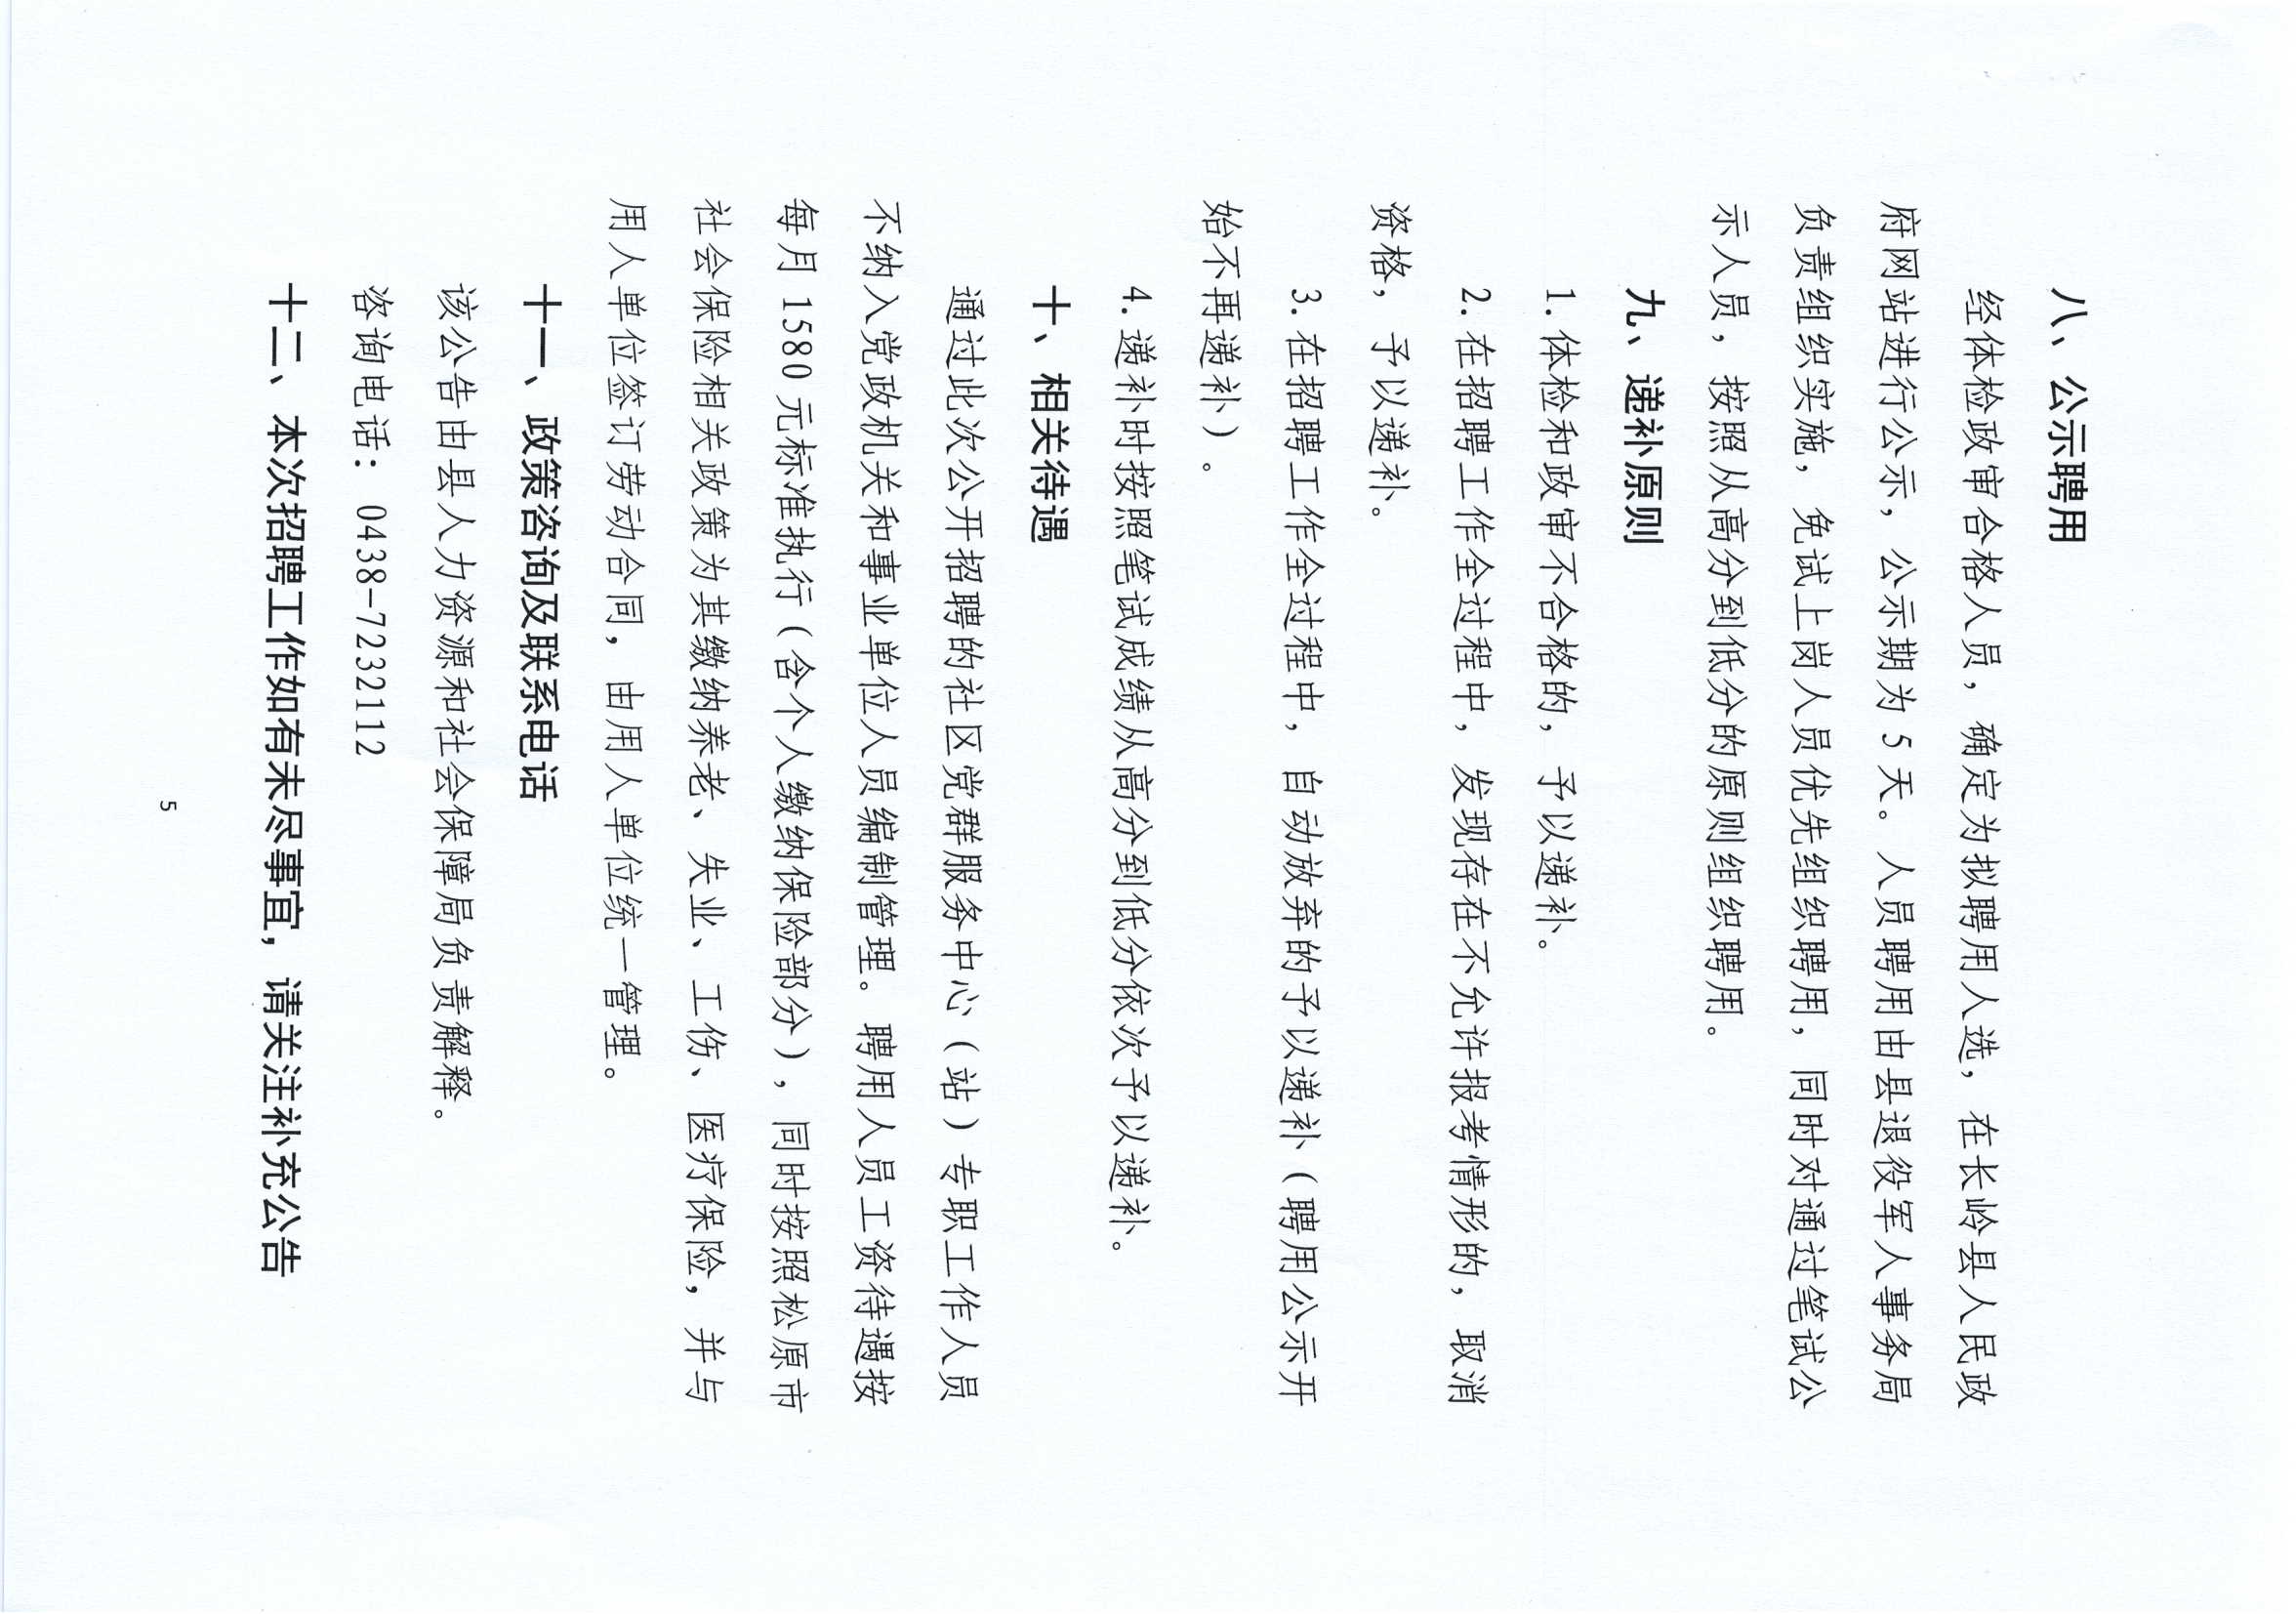 八、公示聘用
经体检政审合格人员，确定为拟聘用人选，在长岭县人民政
府网站进行公示，公示期为 5 天。人员聘用由县退役军人事务局
负责组织实施，免试上岗人员优先组织聘用，同时对通过笔试公
示人员，按照从高分到低分的原则组织聘用。
九、递补原则
1. 体检和政审不合格的，予以递补。
2. 在招聘工作全过程中，发现存在不允许报考情形的，取消
资格，予以递补。
3. 在招聘工作全过程中，自动放弃的予以递补（聘用公示开
始不再递补）。
4. 递补时按照笔试成绩从高分到低分依次予以递补。
十、相关待遇
通过此次公开招聘的社区党群服务中心（站）专职工作人员
不纳入党政机关和事业单位人员编制管理。聘用人员工资待遇按
每月 1580 元标准执行（含个人缴纳保险部分），同时按照松原市
社会保险相关政策为其缴纳养老、失业、工伤、医疗保险，并与
用人单位签订劳动合同，由用人单位统一管理。
十一、政策咨询及联系电话
该公告由县人力资源和社会保障局负责解释。
咨询电话：0438-7232112
十二、本次招聘工作如有未尽事宜，请关注补充公告
5